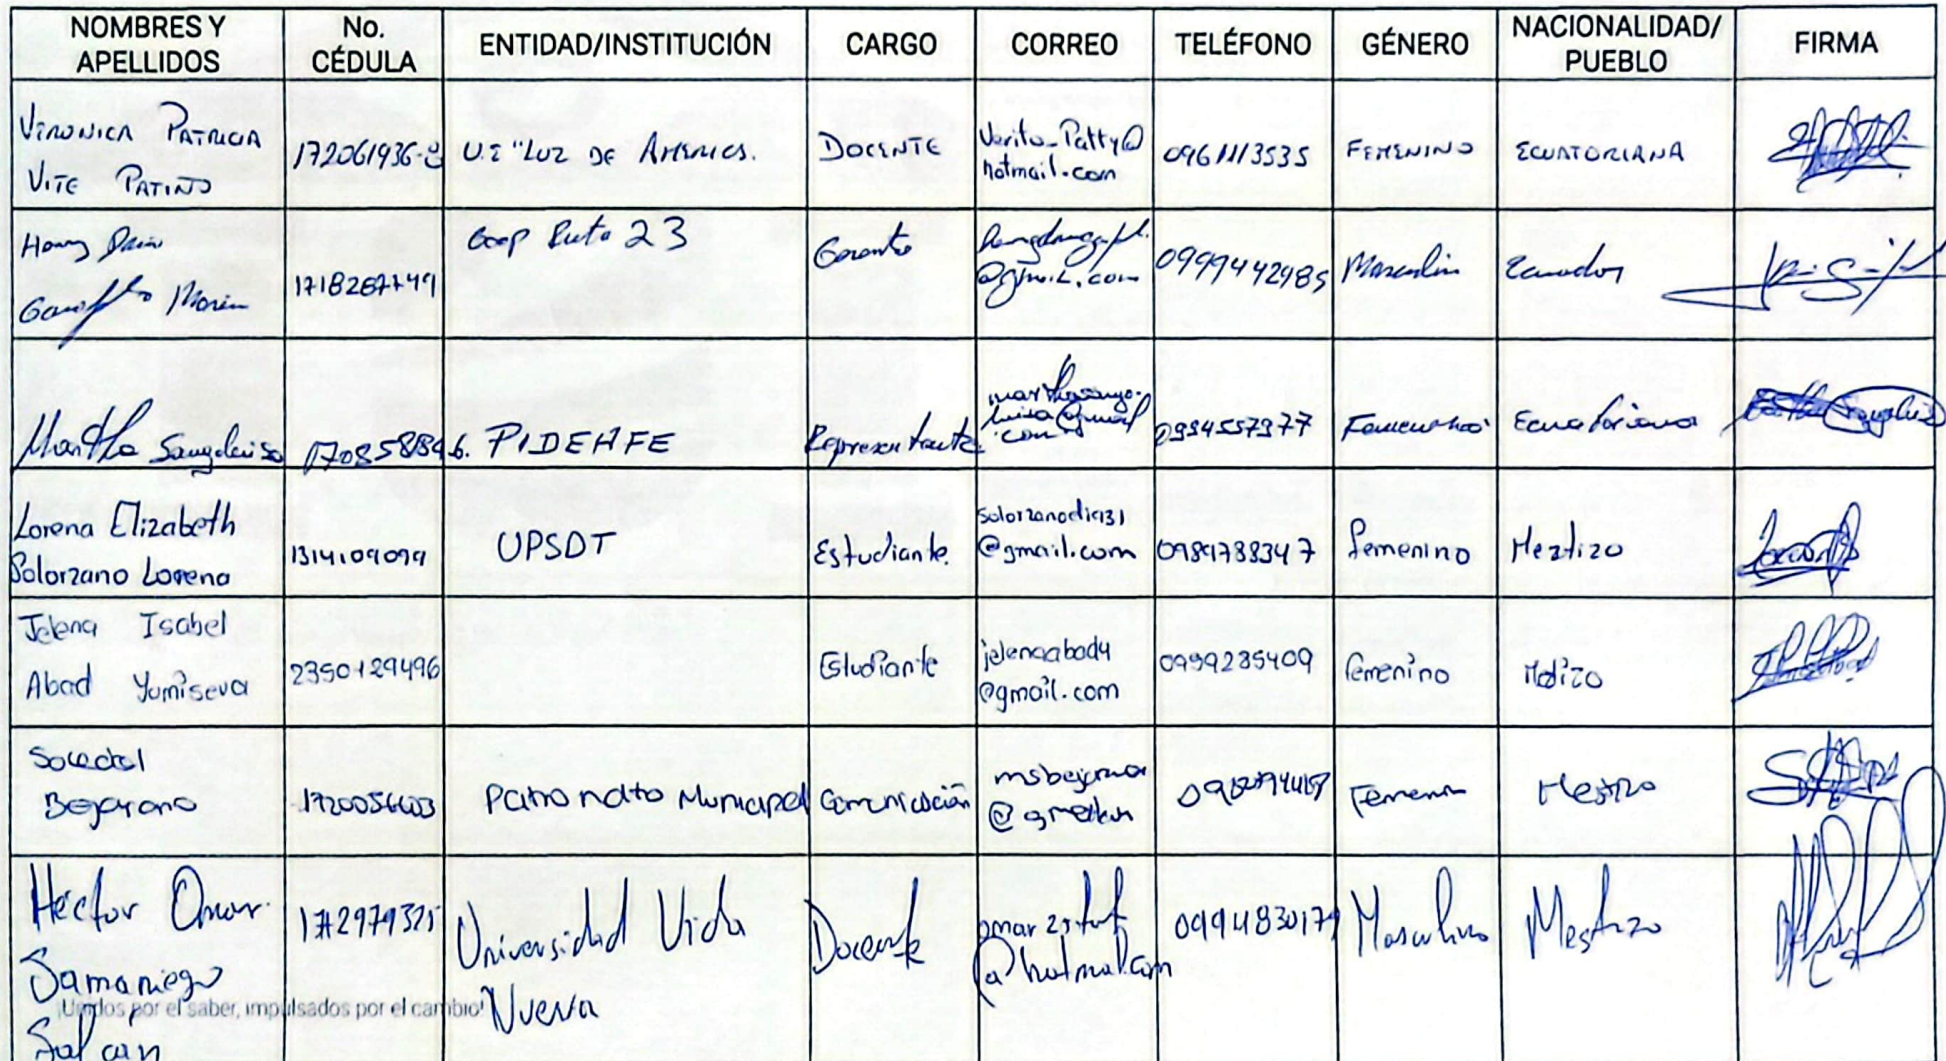 NOMBRES Y APELLIDOS No. CÉDULA ENTIDAD/INSTITUCIÓN CARGO CORREO TELÉFONO GÉNERO NACIONALIDAD/ PUEBLO FIRMA
VERONICA PATRICIA
VITE PATIÑO
172061936-8 U.E "LUZ DE AMERICA. DOCENTE Verito_Patty@
hotmail.com
0961113535 FEMENINO ECUATORIANA
Coop Ruta 23
1718267749 Gerente
@gmail.com
0999442985 Masculin Ecuador
Martha Sanguluisa PIDEHFE Representante
0994557977 Femenino Ecuatoriana
Lorena Elizabeth
Solorzano Lorena
1314109099 UPSDT Estudiante.
@gmail.com
0989788347 femenino Meztizo
Jelena Isabel
Abad Yumiseva
2350129496 Estudiante jelenaabad4
@gmail.com
0999285409 femenino
Soledad
Bejarano
Patronato Municipal Comunicación Mestizo
Hector Omar
Samaniego
Salcan
Universidad Vida
Nueva
Docente
@hotmail.com
0994830179 Masculino Mestizo
¡Unidos por el saber, impulsados por el cambio!